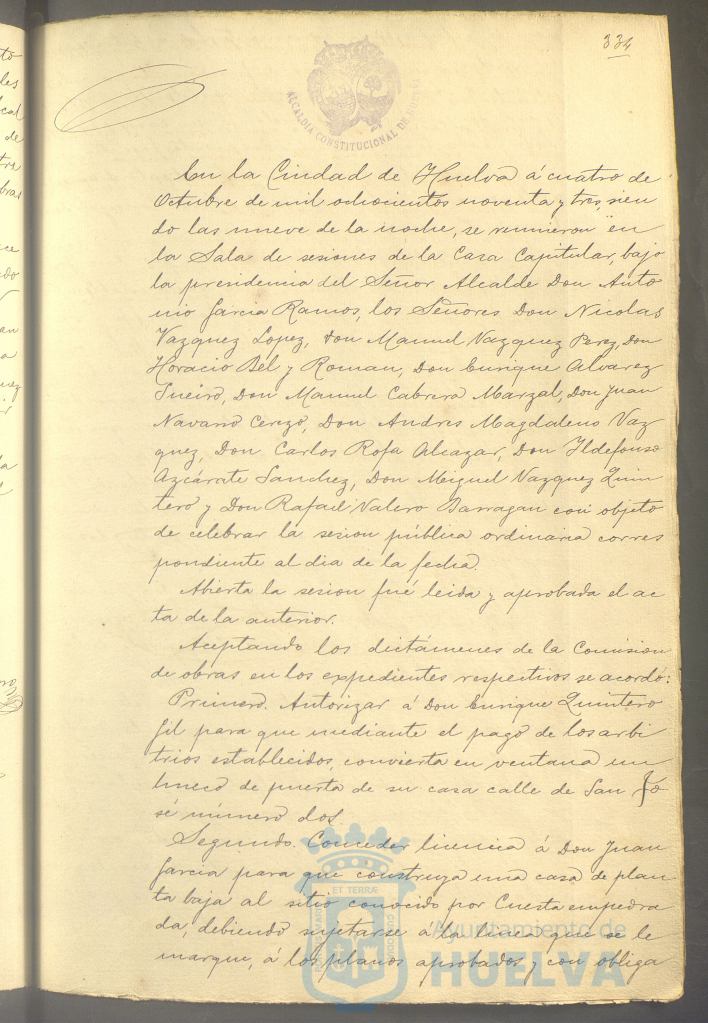 334
ALCALDÍA CONSTITUCIONAL DE HUELVA
En la Ciudad de Huelva á cuatro de
Octubre de mil ochocientos noventa y tres, sien
do las nueve de la noche, se reunieron en
la Sala de sesiones de la Casa Capitular, bajo
la presidencia del Señor Alcalde Don Anto
nio Garcia Ramos, los Señores Don Nicolas
Vazquez Lopez, Don Manuel Vazquez Perez, Don
Horacio Bel y Roman, Don Enrique Alvarez
Sueiro, Don Manuel Cabrera Marzal, Don Juan
Navarro Cerezo, Don Andres Magdaleno Vaz
quez, Don Carlos Rofa Alcazar, Don Ildefonso
Azcárate Sanchez, Don Miguel Vazquez Quin
tero y Don Rafael Valero Barragan con objeto
de celebrar la sesion pública ordinaria corres
pondiente al dia de la fecha.
Abierta la sesion fué leida y aprobada el ac
ta de la anterior.
Aceptando los dictámenes de la Comision
de obras en los expedientes respectivos se acordó:
Primero. Autorizar á Don Enrique Quintero
Gil para que mediante el pago de los arbi
trios establecidos, convierta en ventana un
hueco de puerta de su casa calle de San Jo
sé número dos.
Segundo. Conceder licencia á Don Juan
Garcia para que construya una casa de plan
ta baja al sitio conocido por Cuesta empedra
da, debiendo sujetarse á la linea que se le
marque, á los planos aprobados y con obliga
Ayuntamiento de
HUELVA